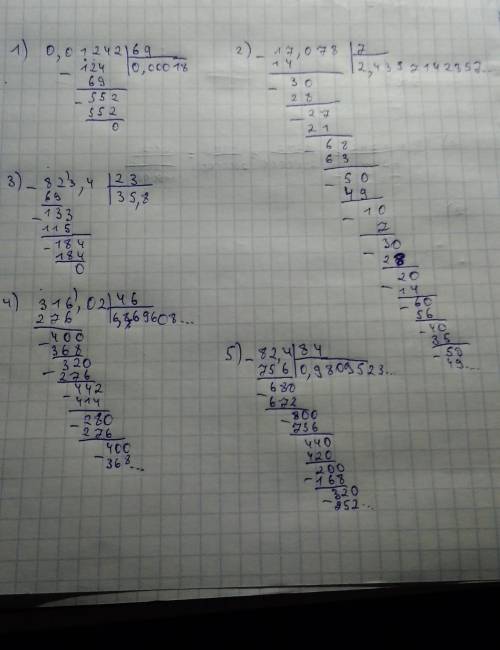 1) 0,01242 | 69
- 124 | 0,00018
69
- 552
552
0
2) - 17,078 | 7
14 | 2,4397142857...
- 30
28
- 27
21
- 68
63
- 50
49
- 10
7
- 30
28
- 20
- 14
- 60
56
- 40
35
- 50
49...
3) - 823,4 | 23
69 | 35,8
- 133
115
- 184
184
0
4) 316,02 | 46
276
- 400
368
- 320
276
- 442
414
- 280
276
- 400
368...
5) - 82,4 | 84
756 | 0,9809523...
- 680
672
- 800
- 756
440
420
- 200
168
- 320
- 252...